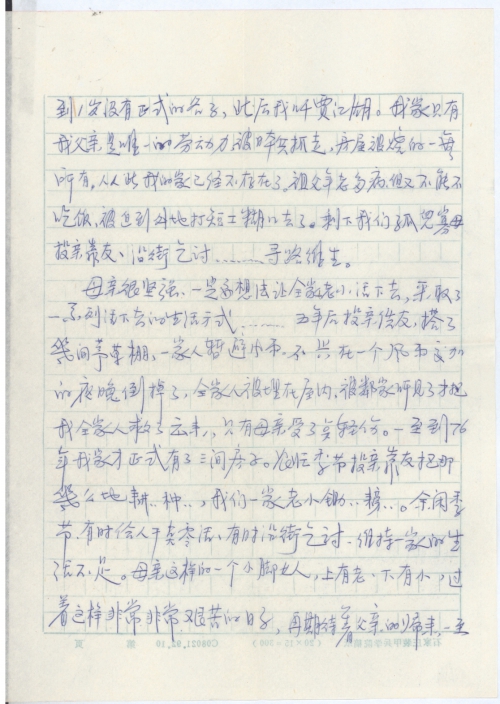 到1岁没有正式的名子，此后我叫贾江湖。我家只有
我父亲是唯一的劳动力被日本鬼抓走，房屋被烧的一无
所有。从此我的家已经不存在了。祖父年老多病但又不能不
吃饭，被迫到外地打短工糊口去了。剩下我们孤儿寡母
投亲靠友、沿街乞讨………寻路维生。
母亲很坚强、一定要想法让全家老小活下去，采取了
一系列活下去的生活方式………五年后投亲傍友，搭了
几间茅草棚，一家人暂避小雨。不兴在一个风雨交加
的夜晚倒掉了，全家人被埋在屋内，被邻家听见了才把
我全家人救了出来，只有母亲受了点轻伤。一直到76
年我家才正式有了三间房子。农忙季节投亲靠友把那
几么地耕..种..，我们一家老小锄..耪..。余闲季
节，有时给人干点零活、有时沿街乞讨、维持一家人的生
活不足。母亲这样的一个小脚女人，上有老、下有小，过
着这样非常非常艰苦的日子，再期待着父亲的归来，一直
(20×15=300)
C98021.92.10
第 页